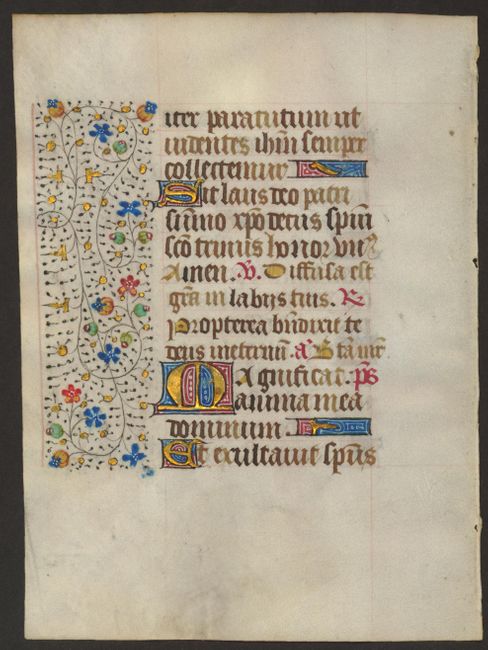 iter para tutum ut
uidentes ihm semper
collectemur
Sit laus deo patri
summo xpo decus spiu
sco trinus honor vn
Amen. V. Diffusa est
gra in labijs tuis. R
Propterea bndixit te
deus ineternu. a
Magnificat. ps
anima mea
dominum.
Et exultauit spus